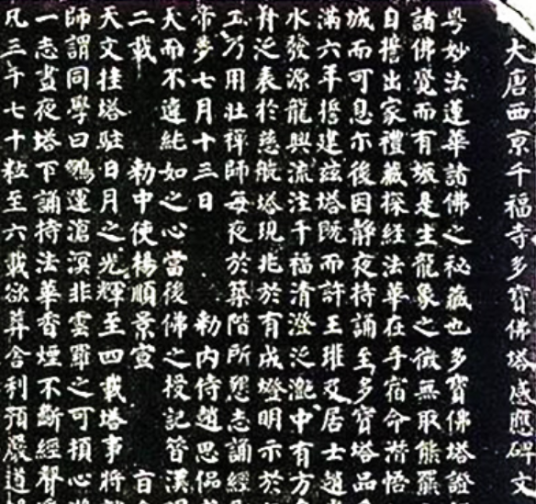 大唐西京千福寺多寶佛塔感應碑文
粤妙法蓮華諸佛之秘藏也多寶佛塔證
諸佛覺而有娠是生龍象之徵無取熊羆
自誓出家禮藏探經法華在手宿命潛悟
城而可息尒後因靜夜持誦至多寶塔品
滿六年誓建茲塔既而許王瓘及居士趙
水發源龍興流注千福清澄泛灎中有方
舟泛表於慈航塔現兆於有成燈明示於
工乃用壯禪師每夜於築階所懇志誦經
帝夢七月十三日 勅內侍趙思侃
天而不違純如之心當後佛之授記昔漢
二載 勅中使楊順景宣
天文挂塔駐日月之光輝至四載塔事將
師謂同學曰鵬運滄溟非雲羅之可頓心
一志晝夜塔下誦持法華香煙不斷經聲
凡三千七十粒至六載欲葬舍利預嚴道